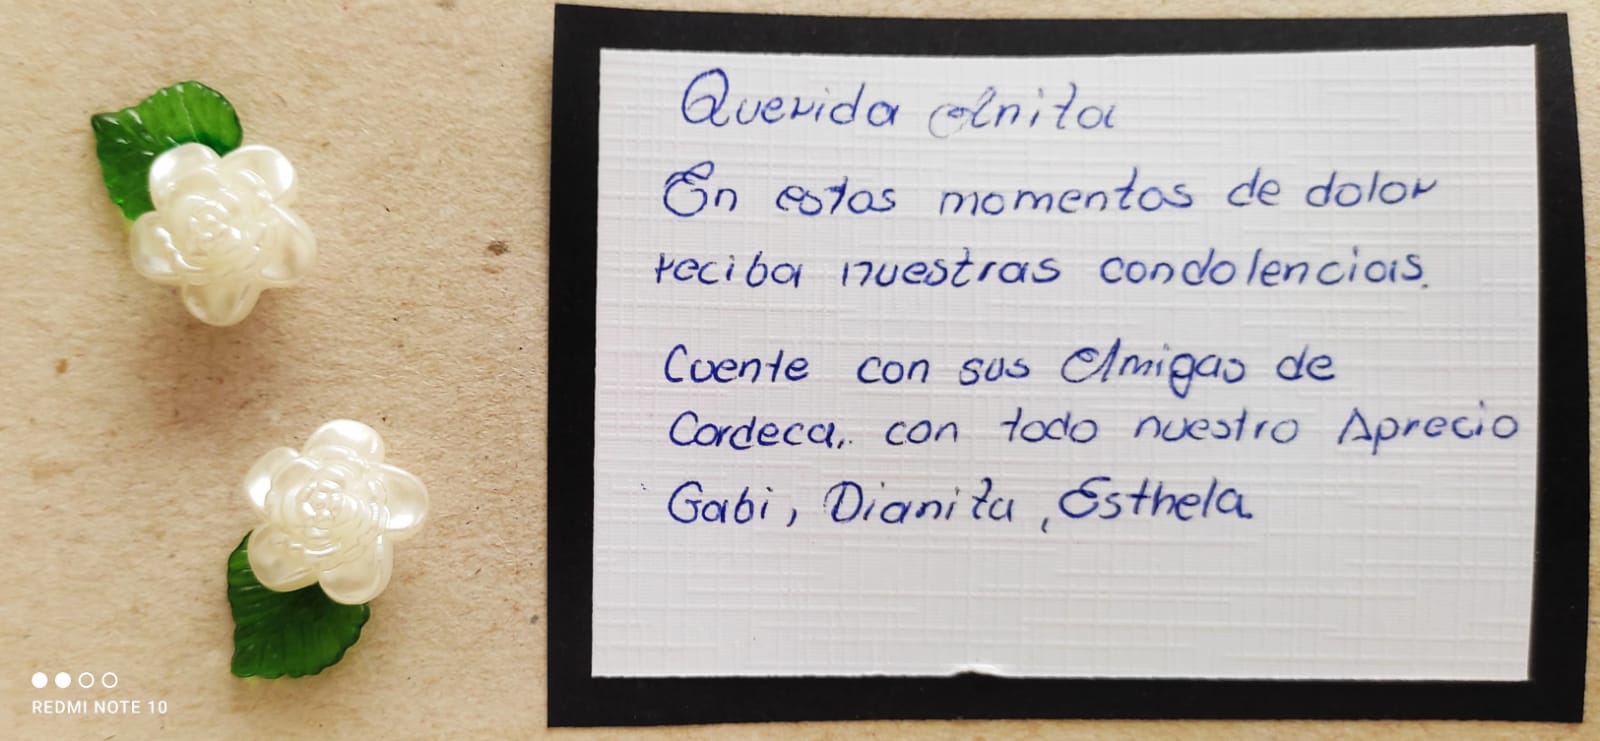 Querida Anita
En estos momentos de dolor
reciba nuestras condolencias.
Cuente con sus Amigas de
Cordeca,. con todo nuestro Aprecio
Gabi, Dianita, Esthela.
REDMI NOTE 10